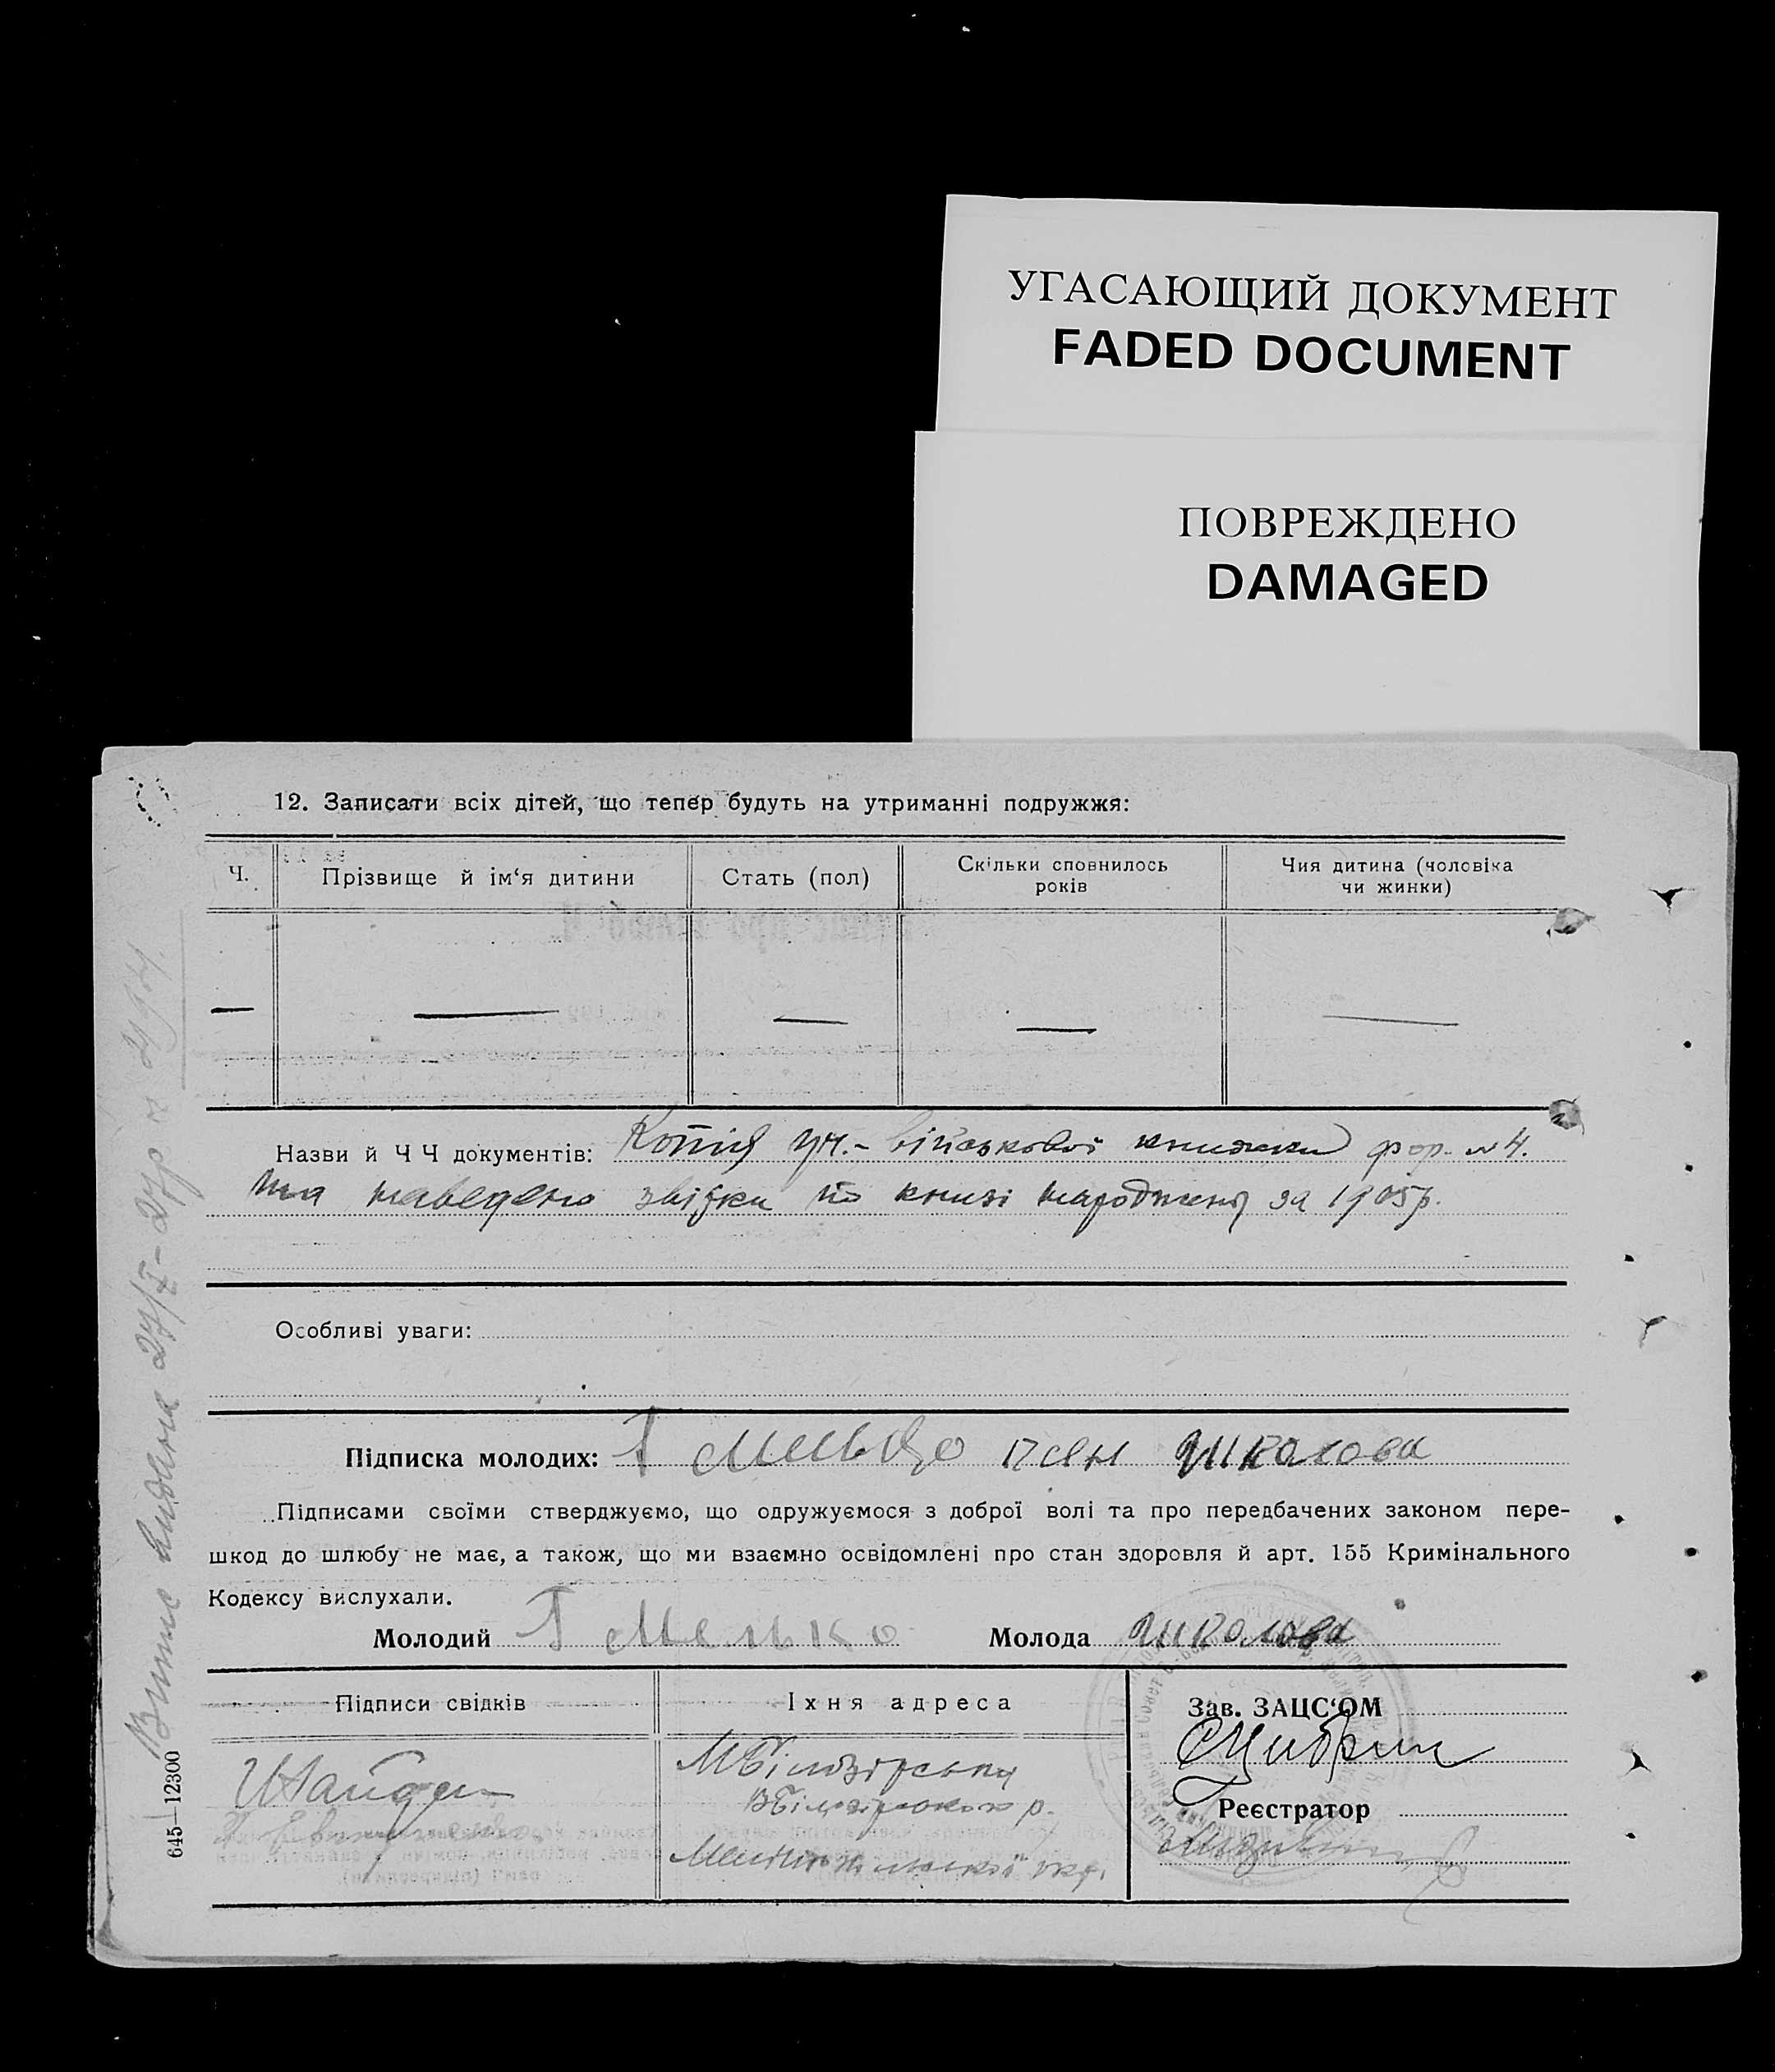 УГАСАЮЩИЙ ДОКУМЕНТ
FADED DOCUMENT
ПОВРЕЖДЕНО
DAMAGED
12. Записати всіх дітей, що тепер будуть на утриманні подружжя:
Ч.
Прізвище й ім‘я дитини
Стать (пол)
Скільки сповнилось
років
Чия дитина (чоловіка
чи жинки)
— — — — —
Назви й Ч Ч документів: Копія уч.- військової книжки фор. №4.
та наведено звідки по книзі народженя за 1905р.
Особливі уваги:
Підписка молодих: Г Мелько Николова
Підписами своїми стверджуємо, що одружуємося з доброї волі та про передбачених законом пере-
шкод до шлюбу не має, а також, що ми взаємно освідомлені про стан здоровля й арт. 155 Кримінального
Кодексу вислухали.
Молодий Г Мелько Молода Николова
Підписи свідків
Їхня адреса
Зав. ЗАЦС‘ОМ
МБілозірська
ВБілозірського р.
Мелитопільської окр.
Реєстратор
645—12300